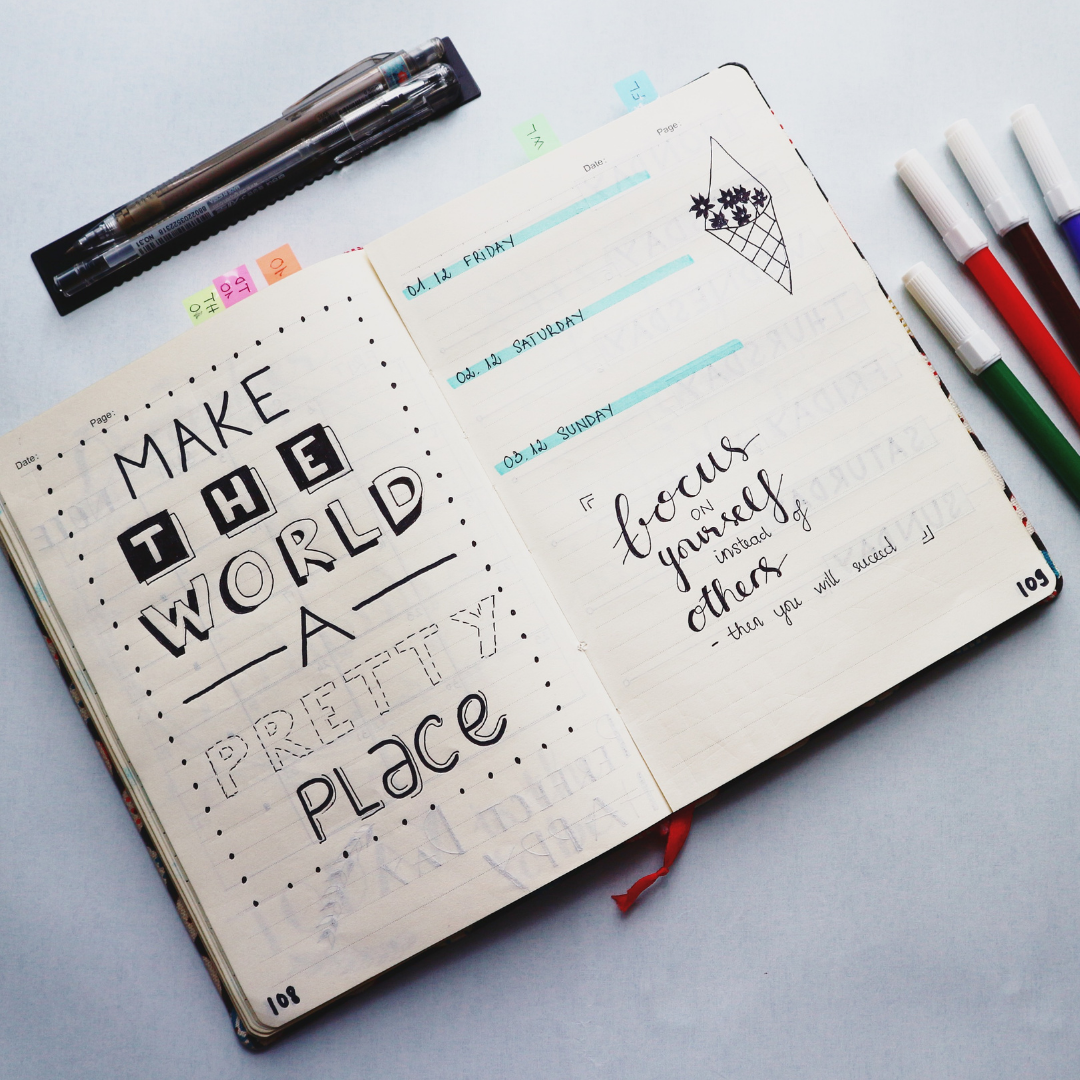 Date:
Page:
MAKE
THE
WORLD
A
PRETTY
PLace
108
Date:
Page:
01.12 FRIDAY
02.12 SATURDAY
03.12 SUNDAY
focus
ON
yourself
instead of
others
- then you will succeed
109